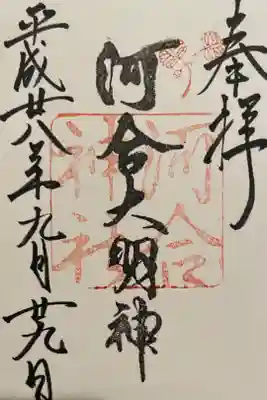 奉拝
河合大明神
河合神社
平成廿八年九月廿九日